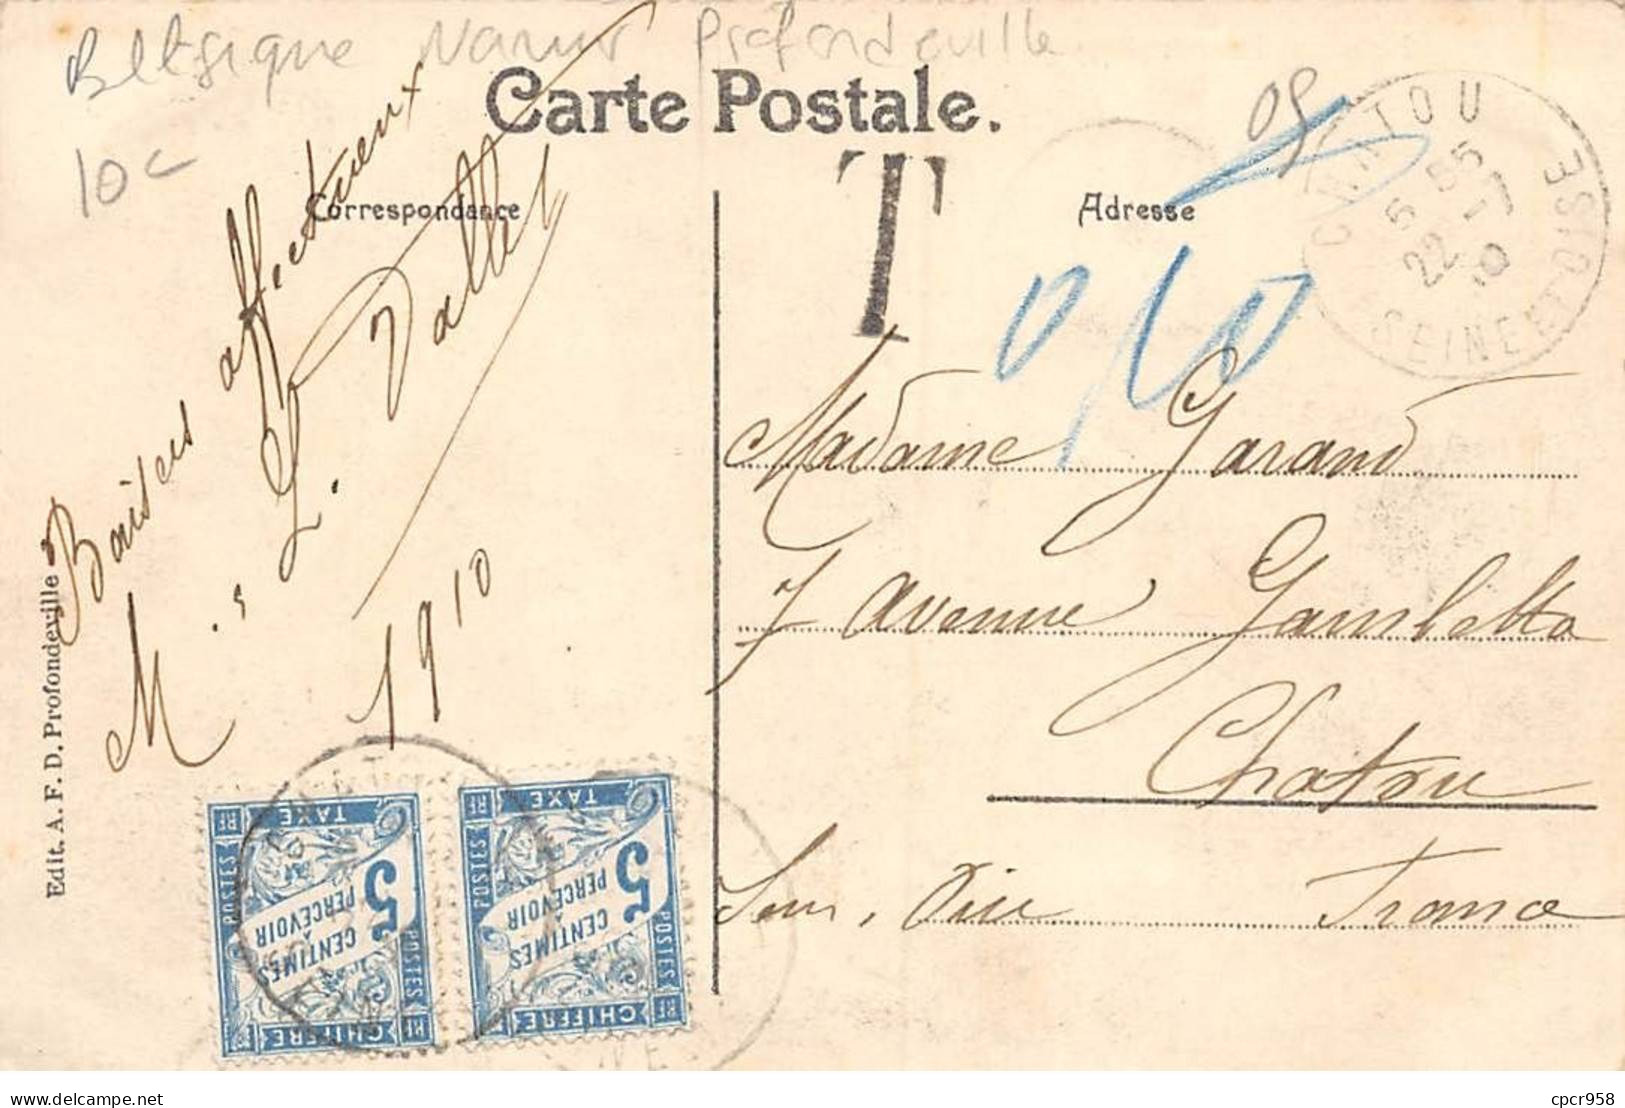 Belgique Namur Profondeville
10c
05
Carte Postale.
Correspondance
Adresse
T
CHATOU
5 55
22 - 7
10
SEINE ET OISE
0,10
Baisers affectueux
M. L. Vallet
1910
Madame Garand
7 Avenue Gambetta
Chatou
France
Edit. A. F. D. Profondeville
POSTES RF TAXE
5 CENTIMES
À
PERCEVOIR
POSTES RF CHIFFRE
POSTES RF TAXE
5 CENTIMES
À
PERCEVOIR
POSTES RF CHIFFRE
www.delcampe.net
cpcr958